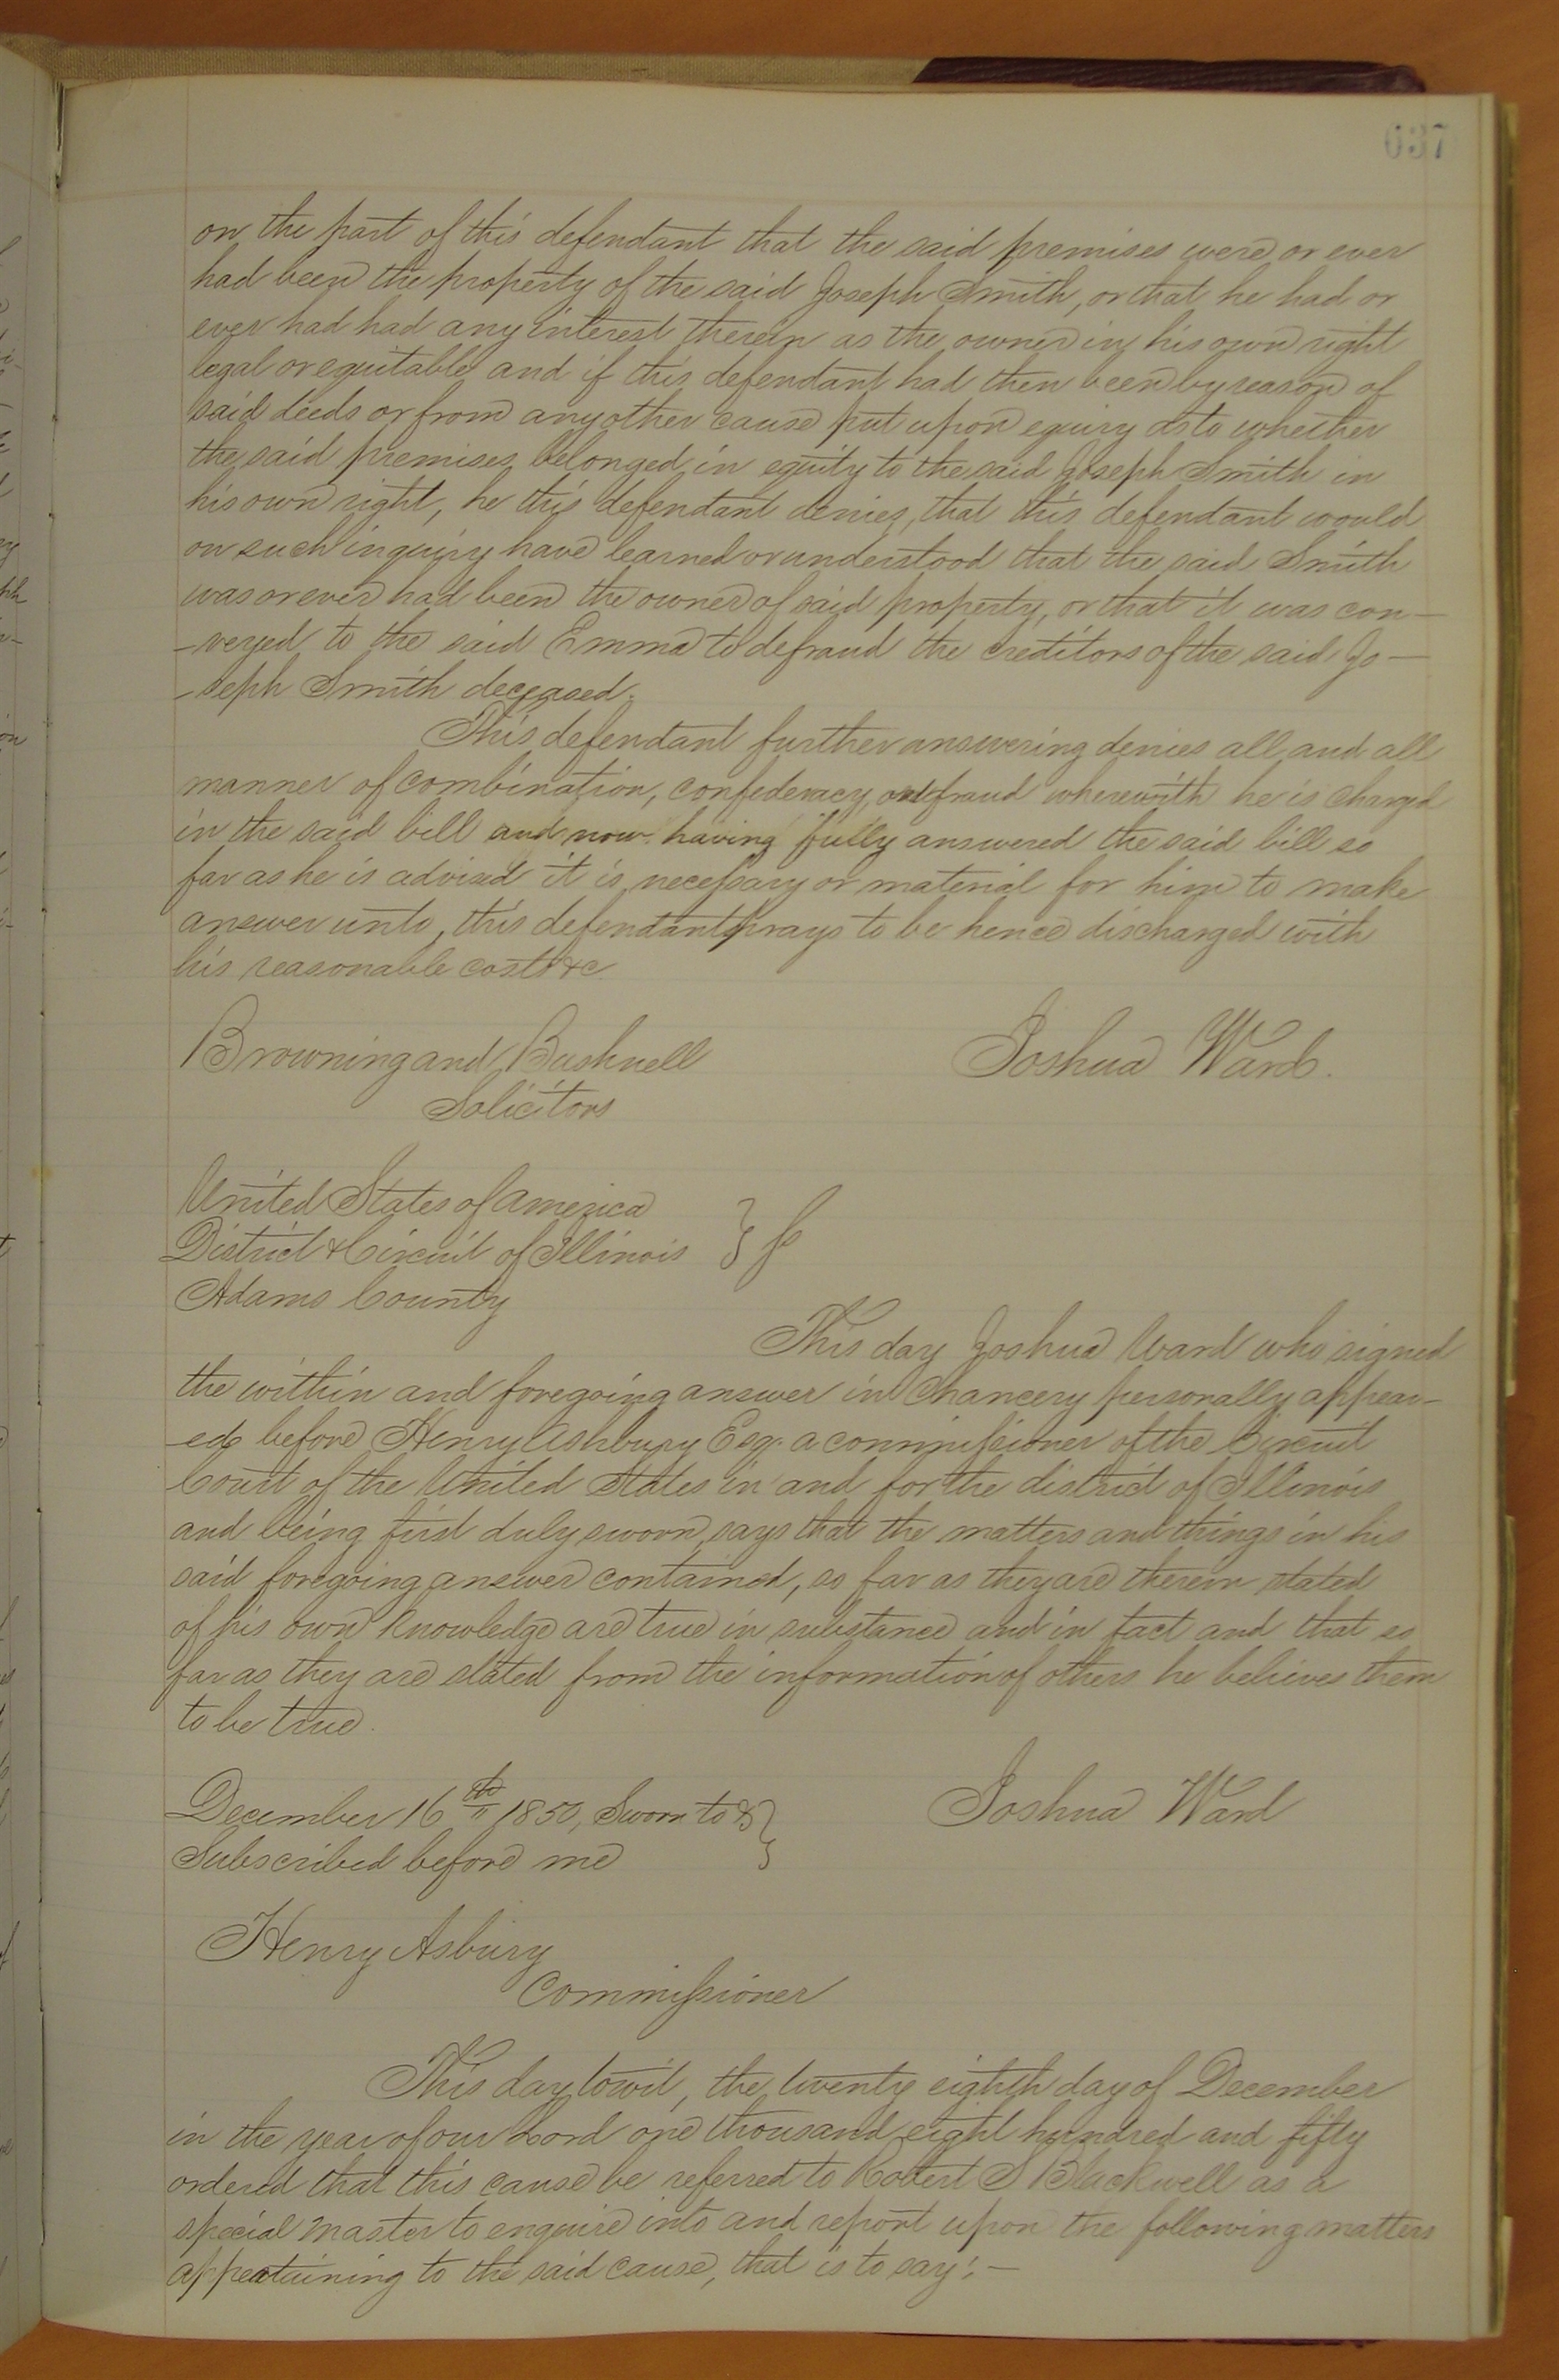 037
on the part of this defendant that the said premises were or ever
had been the property of the said Joseph Smith, or that he had or
ever had had any interest therein as the owner in his own right
legal or equitable and if this defendant had then been by reason of
said deeds or from any other cause put upon equiry as to whether
the said premises belonged in equity to the said Joseph Smith in
his own right, he this defendant denies, that this defendant would
on such inquiry have learned or understood that the said Smith
was or ever had been the owner of said property, or that it was con-
-veyed to the said Emma to defraud the creditors of the said Jo-
-seph Smith deceased.
This defendant further answering denies all and all
manner of combination, confederacy and fraud wherewith he is charged
in the said bill and now having fully answered the said bill so
far as he is advised it is necessary or material for him to make
answer unto, this defendant prays to be hence discharged with
his reasonable costs &c
Browning and Bushnell Joshua Ward.
Solicitors
United States of America
District & Circuit of Illinois } ss
Adams County
This day Joshua Ward who signed
the within and foregoing answer in Chancery personally appear-
-ed before Henry Ashbury Esq. a commissioner of the Circuit
Court of the United States in and for the district of Illinois
and being first duly sworn, says that the matters and things in his
said foregoing answer contained, so far as they are therein stated
of his own knowledge are true in substance and in fact and that so
far as they are stated from the information of others he believes them
to be true.
December 16th 1850, Sworn to & } Joshua Ward
Subscribed before me
Henry Asbury
Commissioner
This day towit, the twenty eighth day of December
in the year of our Lord one thousand eight hundred and fifty
ordered that this cause be referred to Robert S Blackwell as a
special master to enquire into and report upon the following matters
appertaining to the said cause, that is to say; -